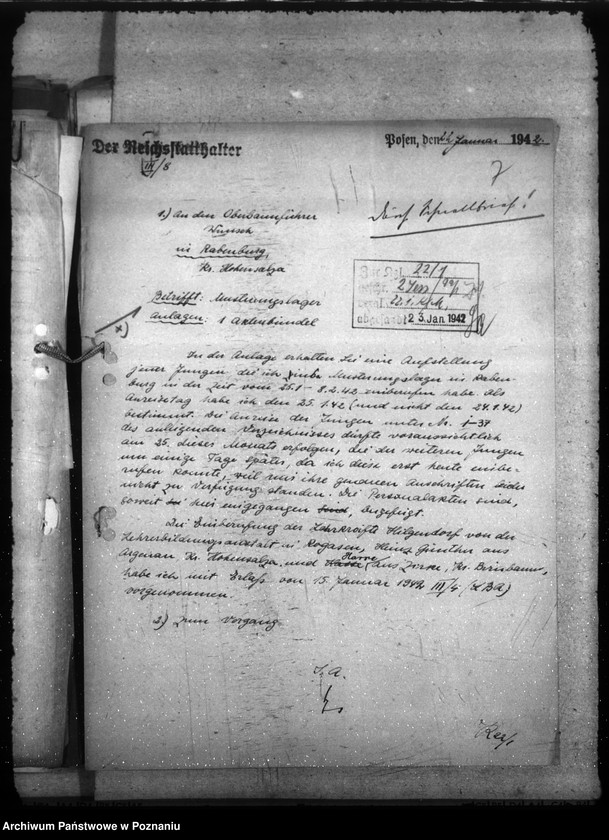 Der Reichsstatthalter
III/8
Posen, den 22. Januar 1942.
7
Durch Schnellbrief!
1.) An den Oberbannführer
Wunsch
in Rabenburg,
Kr. Hohensalza
Betrifft: Musterungslager
Anlagen: 1 Aktenbündel
x)
Zur Kzl. 22/1
abgesandt 23. Jan. 1942
In der Anlage erhalten Sie eine Aufstellung
jener Jungen die ich in das Musterungslager in Raben-
burg in der Zeit vom 25.1 – 8.2.42 einberufen habe. Als
Anreisetag habe ich den 25.1.42 (und nicht den 24.1.42)
bestimmt. Die Anreise der Jungen unter Nr. 1–37
des anliegenden Verzeichnisses dürfte voraussichtlich
am 25. dieses Monats erfolgen, die der weiteren Jungen
um einige Tage später, da ich diese erst heute einbe-
rufen konnte, weil mir ihre genauen Anschriften leider
nicht zu Verfügung standen. Die Personalakten sind,
soweit sie hier eingegangen sind, beigefügt.
Die Einberufung der Lehrkräfte Hilgendorf von der
Lehrerbildungsanstalt in Rogasen, Heinz Günther aus
Argenau Kr. Hohensalza, und aus Zirke, Kr. Birnbaum,
habe ich mit Erlaß vom 15. Januar 1942 III/4 (LBA)
vorgenommen.
2.) Zum Vorgang
I. A.
Archiwum Państwowe w Poznaniu